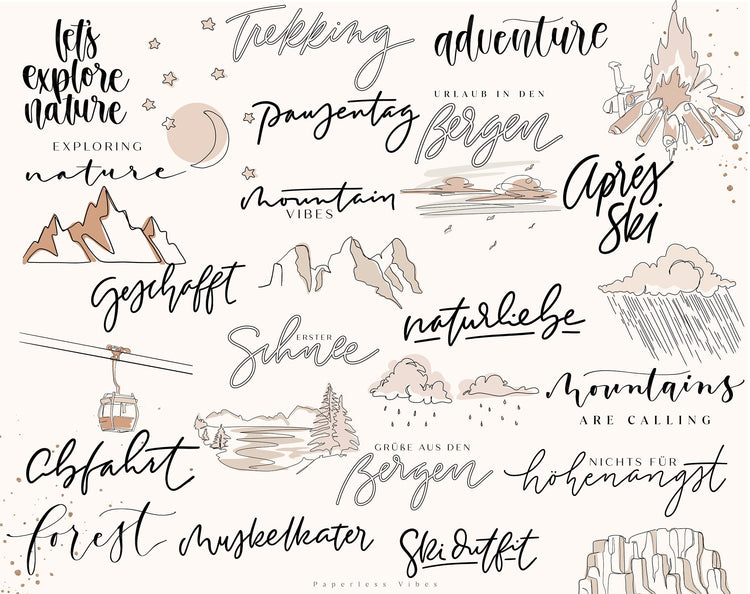 let's
explore
nature
Trekking
adventure
EXPLORING
nature
pausentag
URLAUB IN DEN
Bergen
mountain
VIBES
Après
Ski
geschafft
naturliebe
ERSTER
Schnee
mountains
ARE CALLING
abfahrt
GRÜßE AUS DEN
Bergen
NICHTS FÜR
höhenangst
forest
muskelkater
Skioutfit
Paperless Vibes